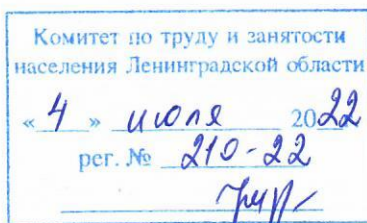 Комитет по труду и занятости
населения Ленинградской области
« 4 » июля 2022
рег. № 210-22